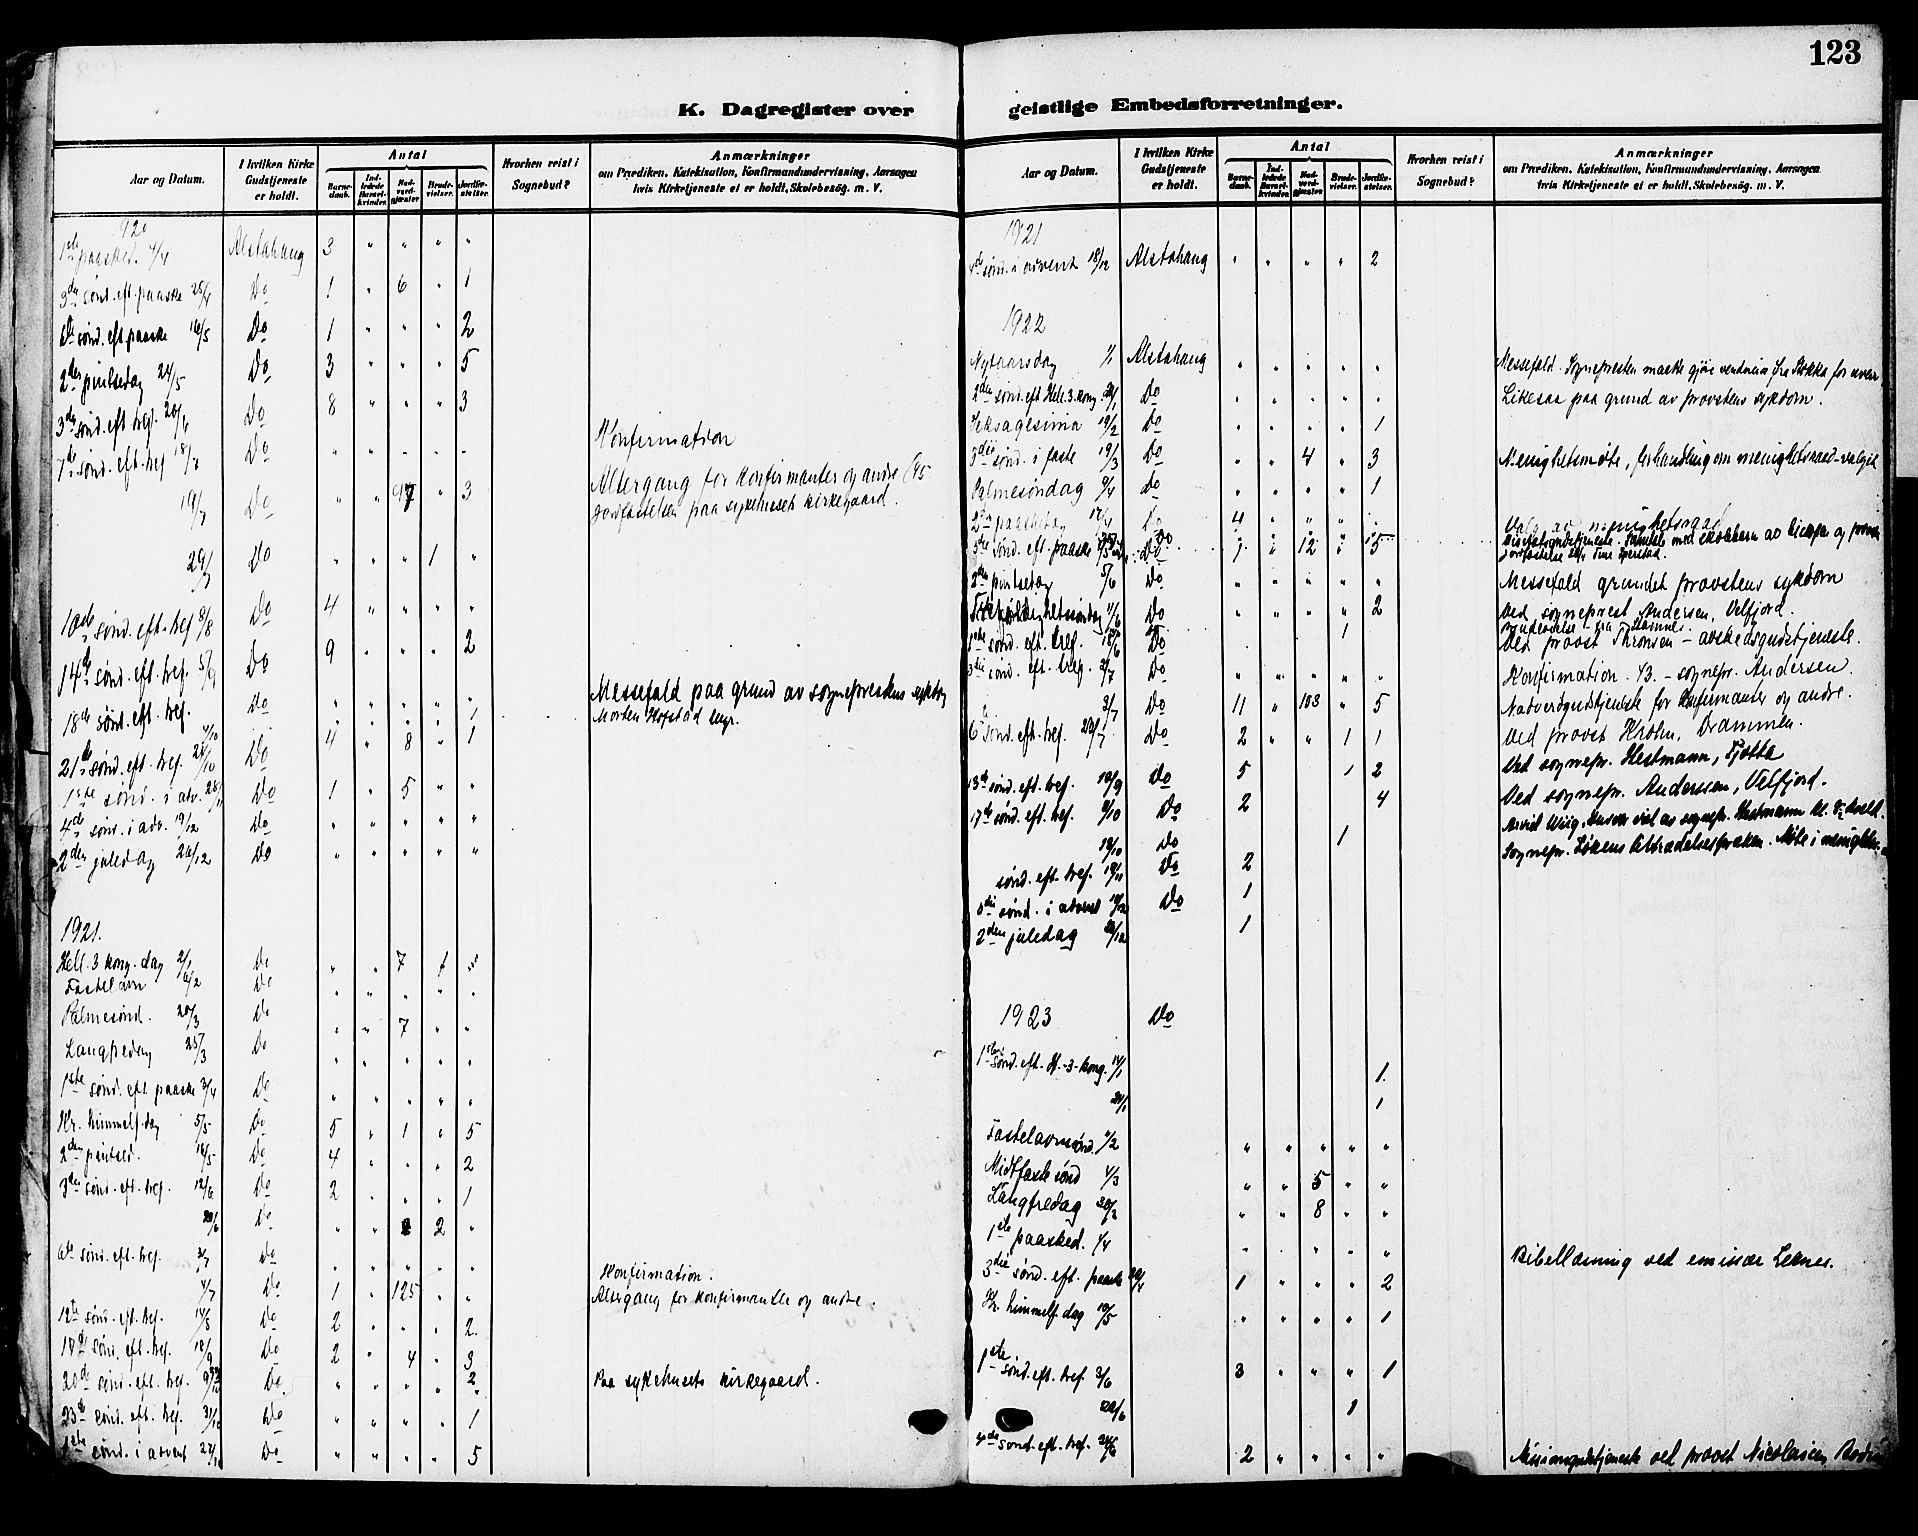 123
K. Dagregister over geistlige Embedsforretninger.
Aar og Datum.
I hvilken Kirke Gudstjeneste er holdt.
Antal
Barnedaab.
Indledede Barselkvinder.
Nadverdgjæster
Brudevielser.
Jordfæstelser.
Hvorhen reist i Sognebud?
Anmærkninger
om Prædiken, Katekisation, Konfirmandundervisning, Aarsagen
hvis Kirketjeneste ei er holdt, Skolebesøg. m. V.
1920
1ste paasked. 4/4 Alstahaug 3 " " " "
3die sønd. eft. paaske 25/4 Do 1 " 6 " 1
sønd. eft. paaske 16/5 Do 1 " " " 2
2den pintsedag 24/5 Do 3 " " " 5
3die sønd. eft. tref. 20/6 Do 8 " " " 3
7de sønd. eft. tref. 18/7 Do " " " " " Konfirmation
19/7 Do " " 97 " 3 Altergang for konfirmanter og andre
Jordfæstelsen paa sykehusets kirkegaard.
29/7 Do " " " 1 "
10de sønd. eft. tref. 8/8 Do 4 " " " "
14de sønd. eft. tref. 5/9 Do 9 " " " 2
18de sønd. eft. tref. Do " " " " " Messefald paa grund av sogneprestens sykdom
4/10 1 Morten Hofstad begr.
21de sønd. eft. tref. 24/10 Do 4 " 8 " 1
1ste sønd. i adv. 28/11 Do 1 " 5 " "
4de sønd. i adv. 19/12 Do " " " " "
2den juledag 26/12 Do " " " " "
1921.
Hell. 3 kong. dag Do " " 7 1 "
Fastelavn 6/2 Do " " " " "
Palmesønd. 20/3 Do " " 7 " "
Langfredag 25/3 Do " " " " "
1ste sønd. eft. paaske 3/4 Do " " " " "
Kr. himmelf. dag 5/5 Do 5 " 1 " 5
2den pintsed. 16/5 Do 4 " " " 2
3die sønd. eft. tref. 12/6 Do 2 " " " 1
Do " " 2 "
6te sønd. eft. tref. 3/7 Do " " " " " Konfirmation.
4/7 Do 1 " 125 " " Altergang for konfirmanter og andre.
12te sønd. eft. tref. 14/8 Do 2 " " " 2
sønd. eft. tref. 18/9 Do 2 " 4 " 3
20de sønd. eft. tref. Do " " " " 2 Paa sykehusets kirkegaard.
23de sønd. eft. tref. Do " " " " 1
1ste sønd. i advent 27/11 Do " " " " 5
Aar og Datum.
I hvilken Kirke Gudstjeneste er holdt.
Antal
Barnedaab.
Indledede Barselkvinder.
Nadverdgjæster
Brudevielser.
Jordfæstelser.
Hvorhen reist i Sognebud?
Anmærkninger
om Prædiken, Katekisation, Konfirmandundervisning, Aarsagen
hvis Kirketjeneste ei er holdt, Skolebesøg. m. V.
1921
4de sønd. i advent 18/12 Alstahaug " " " " 2
1922
Nytaarsdag 1/1 Alstahaug " " " " " Messefald. Sognepresten maatte gjøre vendreise fra Stokka for uveir
2den sønd. eft. Hell. 3. kong. Do " " " " " Likesaa paa grund av provstens sykdom.
Seksagesima 19/2 Do " " " " 1
3die sønd. i faste 19/3 Do " " 4 " 3 Menighetsmøte, forhandling om menighetsraad-valget
Palmesøndag 9/4 Do " " " " 1
2den paaskedag 17/4 Do 4 " " " " Valg av menighetsraad
sønd. eft. paaske Do 1 " 12 " 5
2den pintsedag 5/6 Do " " " " " Messefald grundet provstens sykdom
11/6 Do " " " " 2 Ved sogneprest Andersen, Velfjord.
sønd. eft. tref. 18/6 Do 1 Ved provst Thronsen – avskedsgudstjeneste.
3die sønd. eft. tref. 2/7 Do " " " " " Konfirmation. 43. – sognepr. Andersen
3/7 Do 11 " 103 " 5 Nadverdgudstjeneste for konfirmanter og andre.
6te sønd. eft. tref. Do 2 " " 1 1 Ved provst Krohn, Drammen.
13de sønd. eft. tref. 10/9 Do 5 1 2 Ved sognepr. Hestmann, Tjøtta
17de sønd. eft. tref. 8/10 Do 2 4 Ved sognepr. Anderssen, Velfjord.
Do 1
sønd. eft. tref. 19/11 Do 2 Sognepr. Løkens tiltrædelsespræken. Møte i
3die sønd. i advent Do 1
2den juledag 26/12 1
1923 Do
1ste sønd. eft. H. 3. kong. 14/1 1
1
Fastelavnsønd. 11/2 " " " " "
Midtfastesønd 4/3 " " 5 " "
Langfredag " " 8 " "
1ste paasked. 1/4 " " " " Bibellæsning ved emissær Leknes.
3die sønd. eft. paaske 1 " " " 2
Kr. himmelf. dag 10/5 " " " " 1
1ste sønd. eft. tref. 3/6 3 " " " 1
1
4de sønd. eft. tref. 24/6 2 " " " " Missionsgudstjeneste ved provst Nicolaisen, Bodin